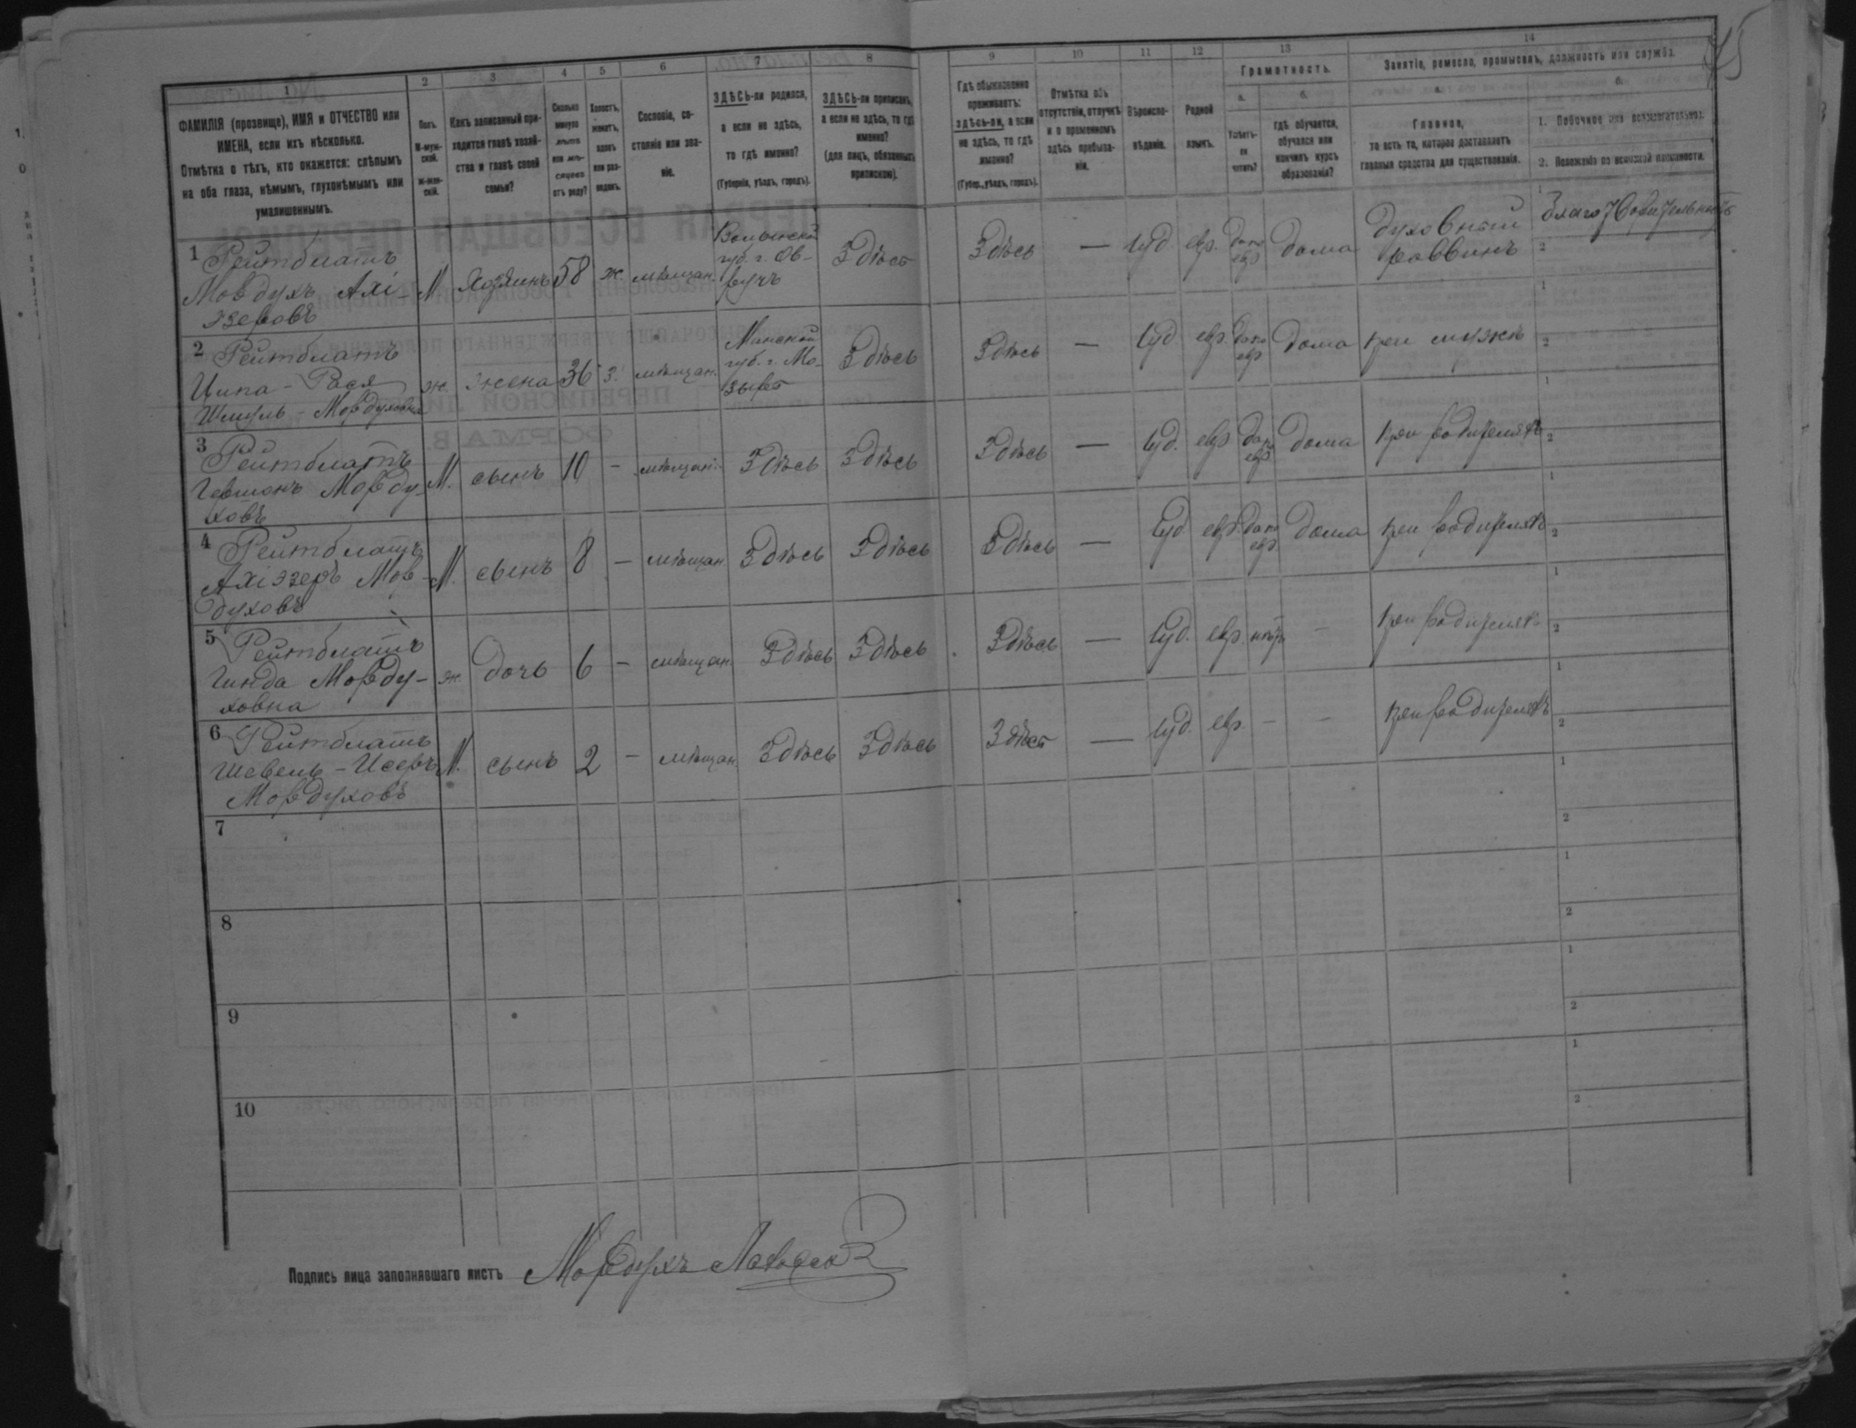 1
2
3
4
5
6
7
8
9
10
11
12
13
14
ФАМИЛІЯ (прозвище), ИМЯ и ОТЧЕСТВО или
ИМЕНА, если ихъ нѣсколько.
Отмѣтка о тѣхъ, кто окажется: слѣпымъ
на оба глаза, нѣмымъ, глухонѣмымъ или
умалишеннымъ.
Полъ.
М-муж-
ской.
Ж-жен-
скій.
Какъ записанный при-
ходится главѣ хозяй-
ства и главѣ своей
семьи?
Сколько
минуло
лѣтъ
или мѣ-
сяцевъ
отъ роду?
Холостъ,
женатъ,
вдовъ
или раз-
веденъ.
Сословіе, со-
стояніе или зва-
ніе.
ЗДѢСЬ-ли родился,
а если не здѣсь,
то гдѣ именно?
(Губернія, уѣздъ, городъ).
ЗДѢСЬ-ли приписанъ,
а если не здѣсь, то гдѣ
именно?
(для лицъ, обязанныхъ
припискою).
Гдѣ обыкновенно
проживаетъ:
здѣсь-ли, а если
не здѣсь, то гдѣ
именно?
(Губер., уѣздъ, городъ).
Отмѣтка объ
отсутствіи, отлучкѣ
и о временномъ
здѣсь пребыва-
ніи.
Вѣроиспо-
вѣданіе.
Родной
языкъ.
Грамотность.
а.
Умѣетъ-
ли
читать?
б.
Гдѣ обучается,
обучался или
кончилъ курсъ
образованія?
Занятіе, ремесло, промыселъ, должность или служба.
а.
Главное,
то есть то, которое доставляетъ
главныя средства для существованія.
б.
1. Побочное или вспомогательное.
2. Положеніе по воинской повинности.
1 Рейтблатъ
Мордухъ Ахі-
эзеровъ
М
Хозяинъ
58
ж.
мѣщан.
Волынской
губ. г. Ов-
ручъ
Здѣсь
Здѣсь
—
Іуд.
евр.
да по
евр
дома
духовный
раввинъ
1
2
2 Рейтблатъ
Ципа - Рася
Шмуль - Мордуховна
ж.
жена
36
з.
мѣщан.
Минской
губ. г. Мо-
зырь
Здѣсь
Здѣсь
—
Іуд.
евр.
да по
евр
дома
при мужѣ
1
2
3 Рейтблатъ
Гершонъ Морду-
ховъ
М.
сынъ
10
-
мѣщан.
Здѣсь
Здѣсь
Здѣсь
—
Іуд.
евр
да по
евр
дома
при родителяхъ
1
2
4 Рейтблатъ
Ахіэзеръ Мор-
духовъ
М.
сынъ
8
-
мѣщан.
Здѣсь
Здѣсь
Здѣсь
—
Іуд
евр.
да по
евр
дома
при родителяхъ
1
2
5 Рейтблатъ
Гинда Морду-
ховна
ж.
дочь
6
-
мѣщан.
Здѣсь
Здѣсь
Здѣсь
—
Іуд.
евр
нѣтъ
-
при родителях
1
2
6 Рейтблатъ
Шевель - Исеръ
Мордуховъ
М.
сынъ
2
-
мѣщан.
Здѣсь
Здѣсь
Здѣсь
—
Іуд.
евр.
-
-
при родителяхъ
1
2
7
1
2
8
1
2
9
1
2
10
1
2
Подпись лица заполнявшаго листъ Мордухъ